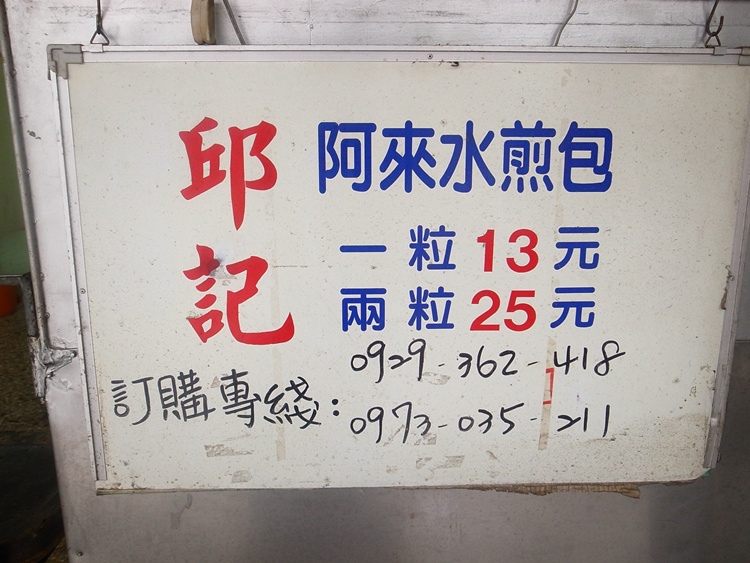 邱記
阿來水煎包
一粒13元
兩粒25元
訂購專綫:
0929-362-418
0973-035-211